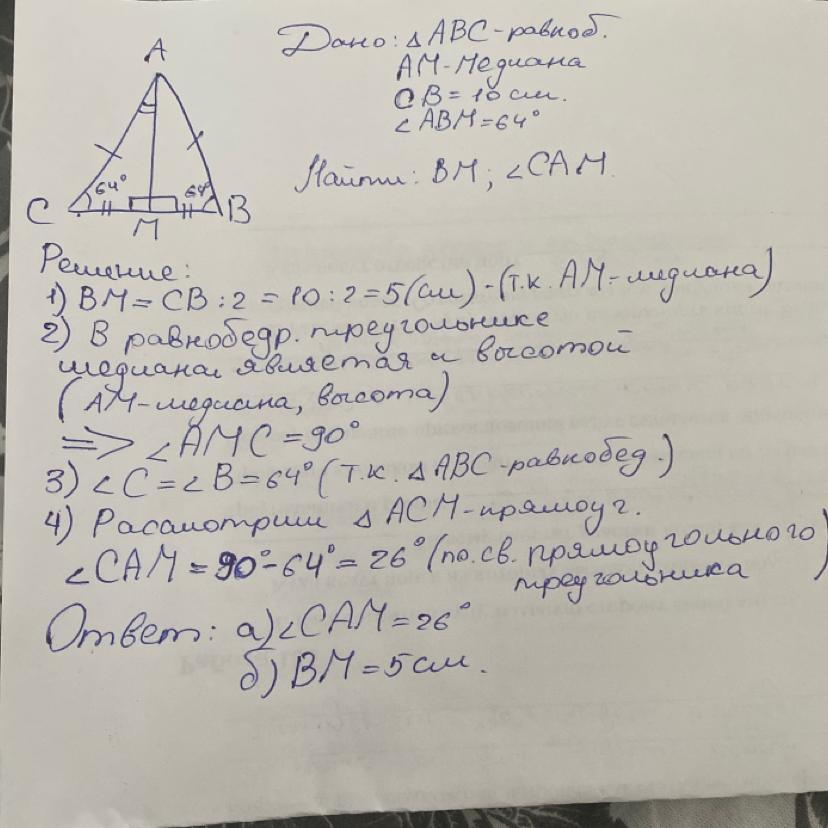 A
64° 64°
C M B
Дано: △ABC-равноб.
AM-медиана
CB = 10 см.
∠ABM = 64°
Найти: BM; ∠CAM.
Решение:
1) BM = CB : 2 = 10 : 2 = 5(см) - (т.к. AM-медиана)
2) В равнобедр. треугольнике
медиана является и высотой
(AM-медиана, высота)
=> ∠AMC = 90°
3) ∠C = ∠B = 64° (т.к. △ABC-равнобед.)
4) Рассмотрим △ACM-прямоуг.
∠CAM = 90° - 64° = 26° (по св. прямоугольного
треугольника)
Ответ: а) ∠CAM = 26°
б) BM = 5 см.